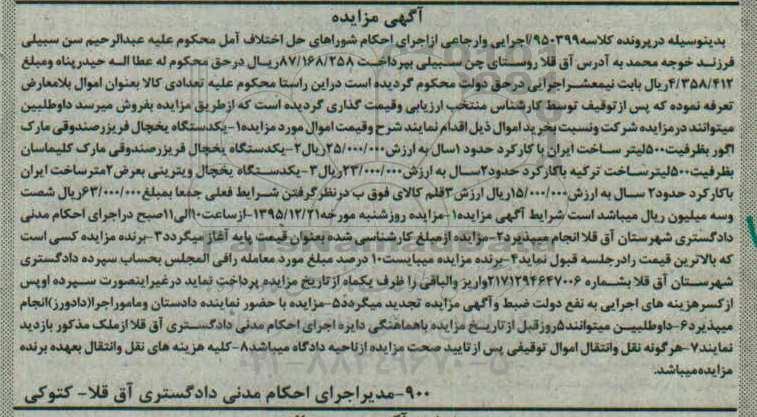 آگهی مزایده
بدینوسیله درپرونده کلاسه۹۵۰۳۹۹/اجرایی وارجاعی ازاجرای احکام شوراهای حل اختلاف آمل محکوم علیه عبدالرحیم سن سبیلی
فرزند خوجه محمد به آدرس آق قلا روستای چن سبیلی بپرداخت ۸۷/۱۶۸/۲۵۸ریال درحق محکوم له عطا اله حیدرپناه ومبلغ
۴/۳۵۸/۴۱۲ریال بابت نیمعشراجرایی درحق دولت محکوم گردیده است دراین راستا محکوم علیه تعدادی کالا بعنوان اموال بلامعارض
تعرفه نموده که پس ازتوقیف توسط کارشناس منتخب ارزیابی وقیمت گذاری گردیده است که ازطریق مزایده بفروش میرسد داوطلبین
میتوانند درمزایده شرکت ونسبت بخرید اموال ذیل اقدام نمایند شرح وقیمت اموال مورد مزایده۱-یکدستگاه یخچال فریزرصندوقی مارک
اگور بظرفیت۵۰۰لیتر ساخت ایران با کارکرد حدود ۱سال به ارزش۲۵/۰۰۰/۰۰۰ریال۲-یکدستگاه یخچال فریزرصندوقی مارک کلیماسان
بظرفیت۵۰۰لیترساخت ترکیه باکارکرد حدود۲سال به ارزش۲۳/۰۰۰/۰۰۰ریال۳-یکدستگاه یخچال ویترینی بعرض۲مترساخت ایران
باکارکرد حدود۲ سال به ارزش۱۵/۰۰۰/۰۰۰ریال ارزش۳قلم کالای فوق ب درنظرگرفتن شرایط فعلی جمعا بمبلغ۶۳/۰۰۰/۰۰۰ریال شصت
وسه میلیون ریال میباشد است شرایط آگهی مزایده۱-مزایده روزشنبه مورخه۱۳۹۵/۱۲/۲۱-ازساعت۱۰الی۱۱صبح دراجرای احکام مدنی
دادگستری شهرستان آق قلا انجام میپذیرد۲-مزایده ازمبلغ کارشناسی شده بعنوان قیمت پایه آغاز میگردد۳-برنده مزایده کسی است
که بالاترین قیمت رادرجلسه قبول نماید۴-برنده مزایده میبایست۱۰ درصد مبلغ مورد معامله رافی المجلس بحساب سپرده دادگستری
شهرستان آق قلا بشماره ۲۱۷۱۲۹۴۶۴۷۰۰۶واریز والباقی را ظرف یکماه ازتاریخ مزایده پرداخت نماید درغیراینصورت سپرده اوپس
ازکسرهزینه های اجرایی به نفع دولت ضبط وآگهی مزایده تجدید میگردد۵-مزایده با حضور نماینده دادستان وماموراجرا(دادورز)انجام
میپذیرد۶-داوطلبین میتوانند۵روزقبل ازتاریخ مزایده باهماهنگی دایره اجرای احکام مدنی دادگستری آق قلا ازملک مذکور بازدید
نمایند۷-هرگونه نقل وانتقال اموال توقیفی پس ازتایید صحت مزایده ازناحیه دادگاه میباشد۸-کلیه هزینه های نقل وانتقال بعهده برنده
مزایده میباشد.
۹۰۰-مدیراجرای احکام مدنی دادگستری آق قلا- کتوکی